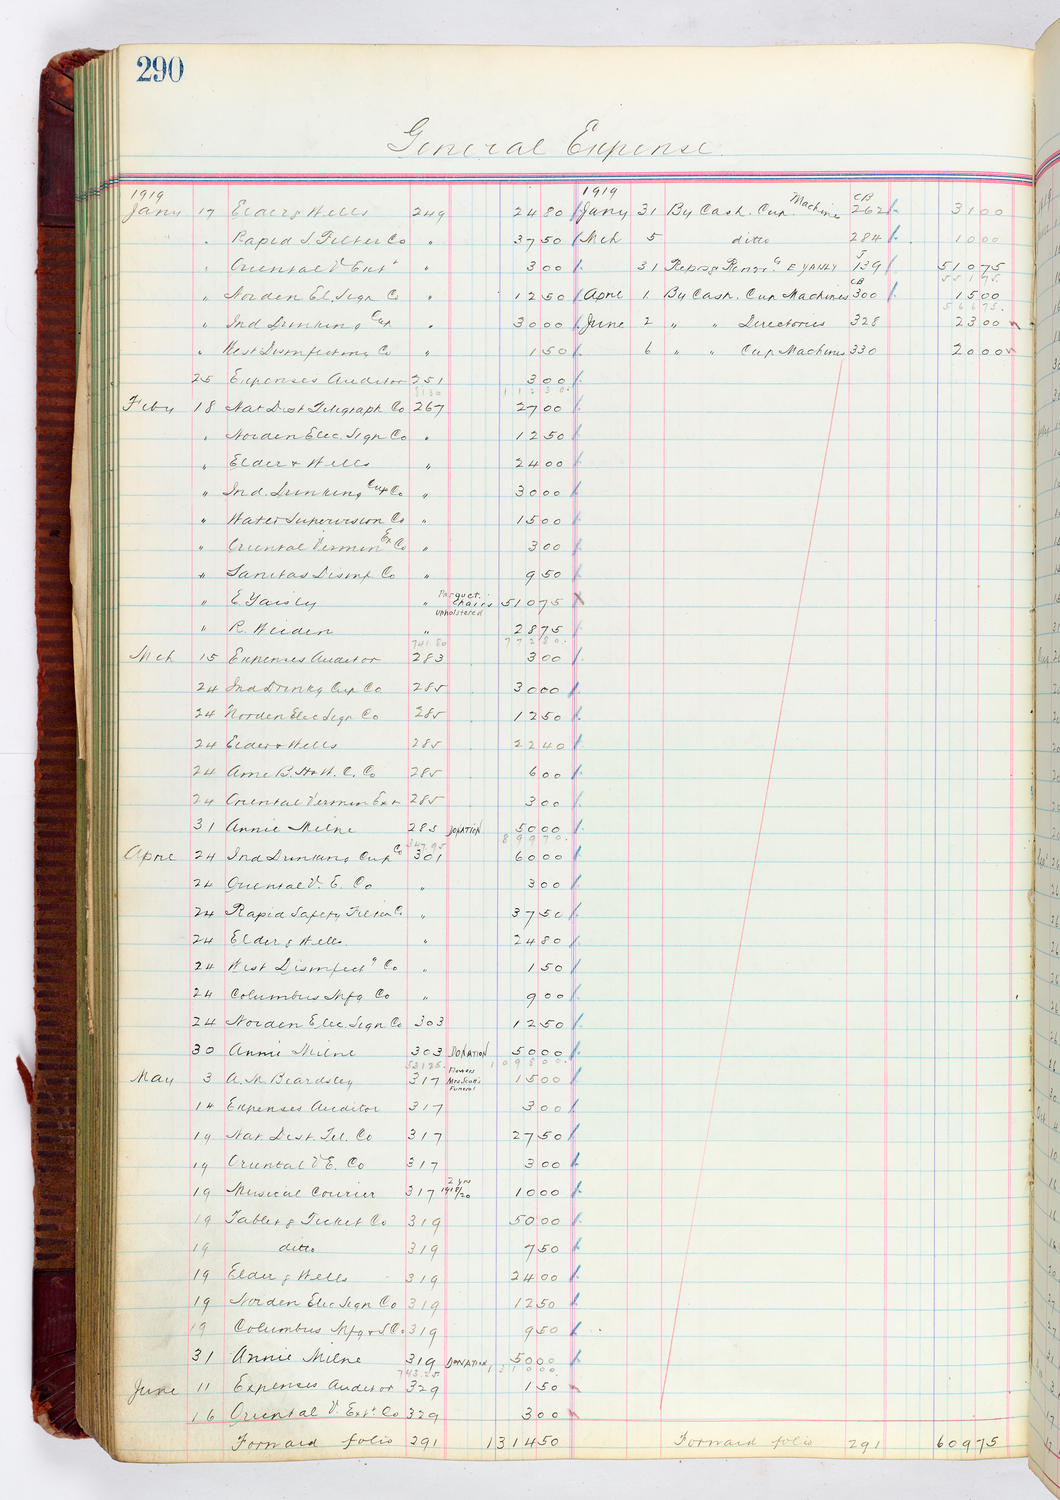 290
General Expense
1919 1919
Jany 17 Elder & Wells 249 24 80 Jany 31 By Cash. Cup Machine CB 262 31 00
" Rapid S Filter Co " 37 50 Mch 5 ditto 284 10 00
" Oriental V Ext " 3 00 31 Repos & Renew E Yaisly J 139 510 75
551 75
" Norden El. Sign Co " 12 50 April 1 By Cash. Cup Machines CB 300 15 00
566 75
" Ind Drinking Cup " 30 00 June 2 " " Directories 328 23 00
" West Disinfecting Co " 1 50 6 " " Cup Machines 330 20 00
25 Expenses Auditor 251 3 00
31 30 112 30
Feby 18 Nat Dist Telegraph Co 267 27 00
" Norden Elec. Sign Co " 12 50
" Elder & Wells " 24 00
" Ind. Drinking Cup Co " 30 00
" Water Supervision Co " 15 00
" Oriental Vermin Ex Co " 3 00
" Sanitas Disinf. Co " 9 50
" E. Yaisly " Parquet. Chairs upholstered 510 75
" R. Weiden " 28 75
741.80 772 80
Mch 15 Expenses Auditor 283 3 00
24 Ind Drinkg Cup Co 285 30 00
24 Norden Elec Sign Co 285 12 50
24 Elder & Wells 285 22 40
24 Ame B. H & W. C. Co 285 6 00
24 Oriental Vermin Ext 285 3 00
31 Annie Milne 285 Donation 50 00
347.95 899 70
April 24 Ind Drinking Cup Co 301 60 00
24 Oriental V. E. Co " 3 00
24 Rapid Safety Filter Co " 37 50
24 Elder & Wells " 24 80
24 West Disinfect'g Co " 1 50
24 Columbus Mfg Co " 9 00
24 Norden Elec. Sign Co 303 12 50
30 Annie Milne 303 Donation 50 00
531 25 1098 00
May 3 A. M. Beardsley 317 Flowers Mrs Scott's Funeral 15 00
14 Expenses Auditor 317 3 00
19 Nat. Dist. Tel. Co 317 27 50
19 Oriental V E. Co 317 3 00
19 Musical Courier 317 2 yrs 1918/20 10 00
19 Tablet & Ticket Co 319 50 00
19 ditto 319 7 50
19 Elder & Wells 319 24 00
19 Norden Elec Sign Co 319 12 50
19 Columbus Mfg & S Co. 319 9 50
31 Annie Milne 319 Donation 50 00
743.25 1310 00
June 11 Expenses Auditor 329 1 50
16 Oriental V. Ext. Co 329 3 00
Forward folio 291 1314 50 Forward folio 291 609 75